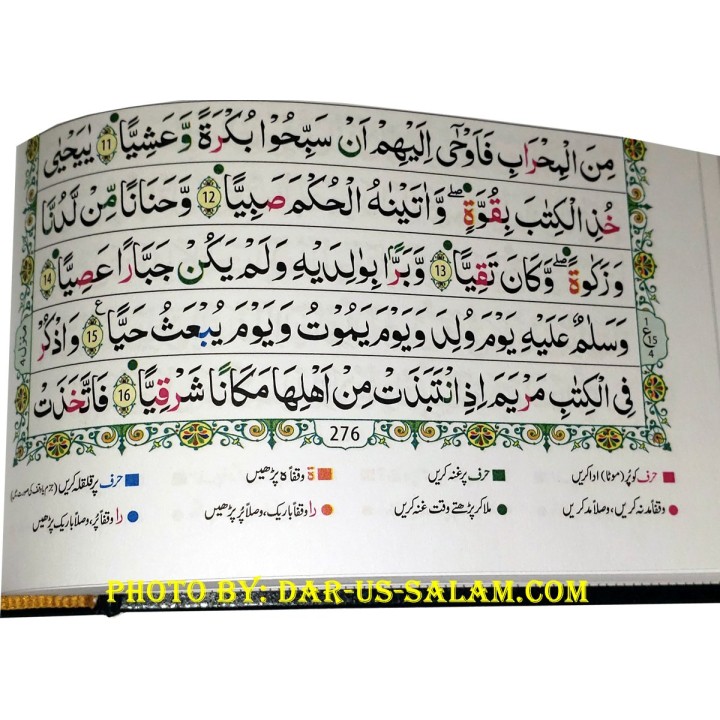 مِنَ الْمِحْرَابِ فَاَوْحٰٓى اِلَيْهِمْ اَنْ سَبِّحُوْا بُكْرَةً وَّعَشِيًّا 11 يٰيَحْيٰى
خُذِ الْكِتٰبَ بِقُوَّةٍ ؕ وَاٰتَيْنٰهُ الْحُكْمَ صَبِيًّا 12 وَّحَنَانًا مِّنْ لَّدُنَّا
وَزَكٰوةً ؕ وَّكَانَ تَقِيًّا 13 وَّبَرًّۢا بِوَالِدَيْهِ وَلَمْ يَكُنْ جَبَّارًا عَصِيًّا 14
وَسَلٰمٌ عَلَيْهِ يَوْمَ وُلِدَ وَيَوْمَ يَمُوْتُ وَيَوْمَ يُبْعَثُ حَيًّا 15 وَاذْكُرْ
فِى الْكِتٰبِ مَرْيَمَ اِذِ انْتَبَذَتْ مِنْ اَهْلِهَا مَكَانًا شَرْقِيًّا 16 فَاتَّخَذَتْ
ع 15 4
منزل 4
276
حرف کو پُر (موٹا) ادا کریں حرف پر غنہ کریں ة وقفاً ہ پڑھیں حرف پر قلقلہ کریں
وقفاً مد نہ کریں، وصلاً مد کریں ملا کر پڑھتے وقت غنہ کریں را وقفاً باریک، وصلاً پُر پڑھیں را وقفاً پُر، وصلاً باریک پڑھیں
PHOTO BY: DAR-US-SALAM.COM